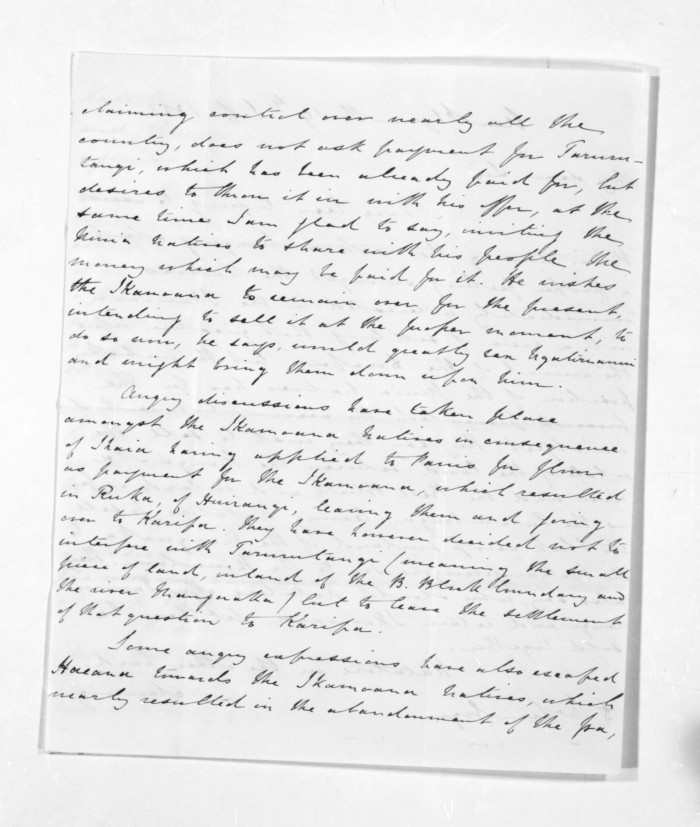 claiming control over nearly all the
country, does not ask payment for Taruru-
tangi, which has been already paid for, but
desires to throw it in with his offer, at the
same time I am glad to say, inviting the
Ninia natives to share with his people the
money which may be paid for it. He wishes
the Ikamoana to remain over for the present,
intending to sell it at the proper moment, to
do so now, he says, would greatly sea Ngatiruanui
and might bring them down upon him.
Angry discussions have taken place
amongst the Ikamoana Natives in consequence
of Ihaia having applied to Parris for flour
as payment for the Ikamoana, which resulted
in Ruka, of Huirangi, leaving them and going
over to Karipa. They have however decided not to
interfere with Tarurutangi (meaning the small
piece of land, inland of the B. Block boundary and
the river Mangaraka) but to leave the settlement
of that question to Karipa.
Some angry expressions have also escaped
Hasana towards the Ikamoana Natives, which
nearly resulted in the abandonment of the pa,